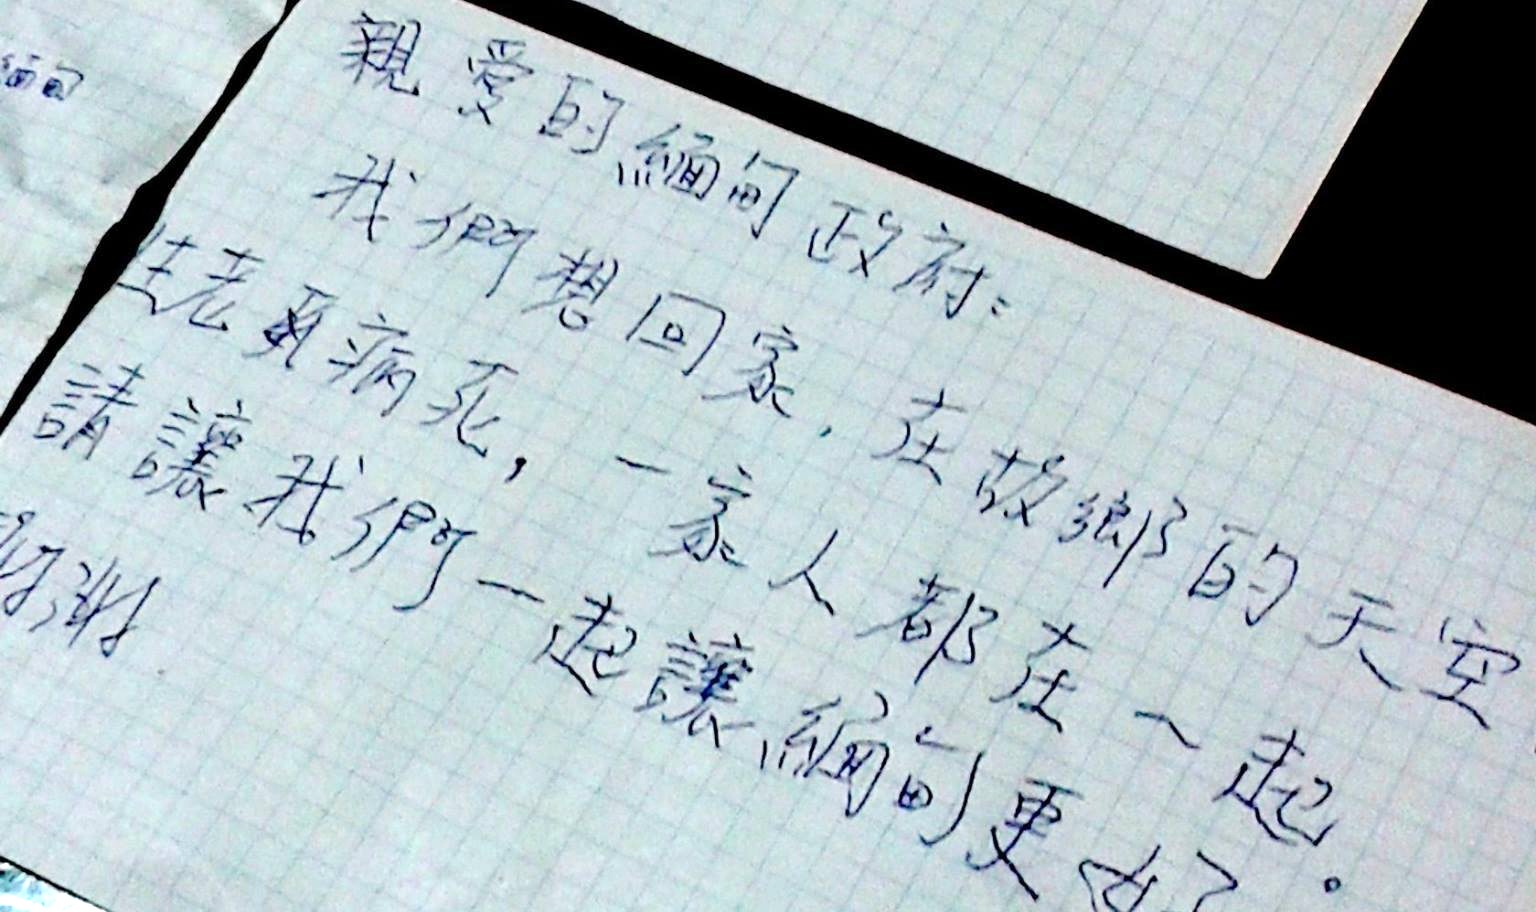 緬甸
親愛的緬甸政府：
我們想回家，在故鄉的天空
生老病死，一家人都在一起．
請讓我們一起讓緬甸更好